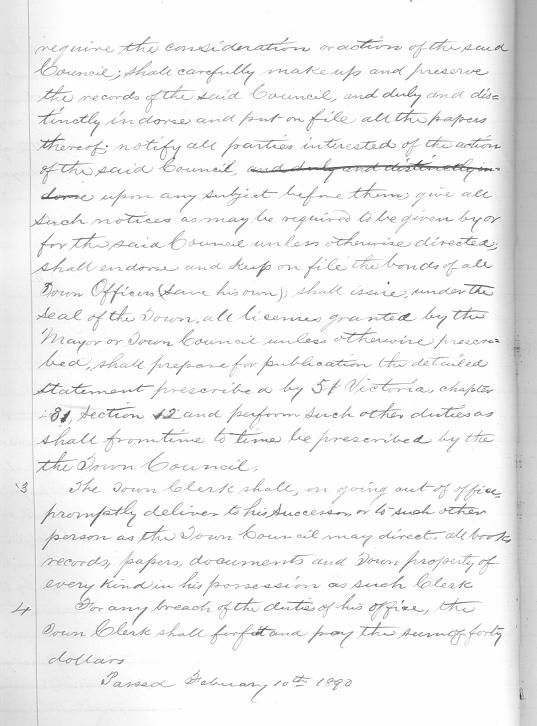 require the consideration or action of the said
Council; shall carefully make up and preserve
the records of the said Council, and duly and dis=
tinctly indorse and put on file all the papers
thereof; notify all parties interested of the action
of the said Council, and duly and distinctly in=
dorse upon any subject before them; give all
such notices as may be required to be given by or
for the said Council unless otherwise directed;
shall endorse and keep on file the bonds of all
Town Officers (save his own); shall issue, under the
Seal of the Town, all licenses granted by the
Mayor or Town Council unless otherwise prescri=
bed, shall prepare for publication the detailed
Statement prescribed by 51 Victoria, chapter
81, Section 12 and perform such other duties as
shall from time to time be prescribed by the
the Town Council.
3 The Town Clerk shall, on going out of office
promptly deliver to his successor or to such other
person as the Town Council may direct all books
records, papers, documents and Town property of
every kind in his possession as such Clerk
4 For any breach of the duties of his office, the
Town Clerk shall forfeit and pay the sum of forty
dollars
Passed February 10th 1890